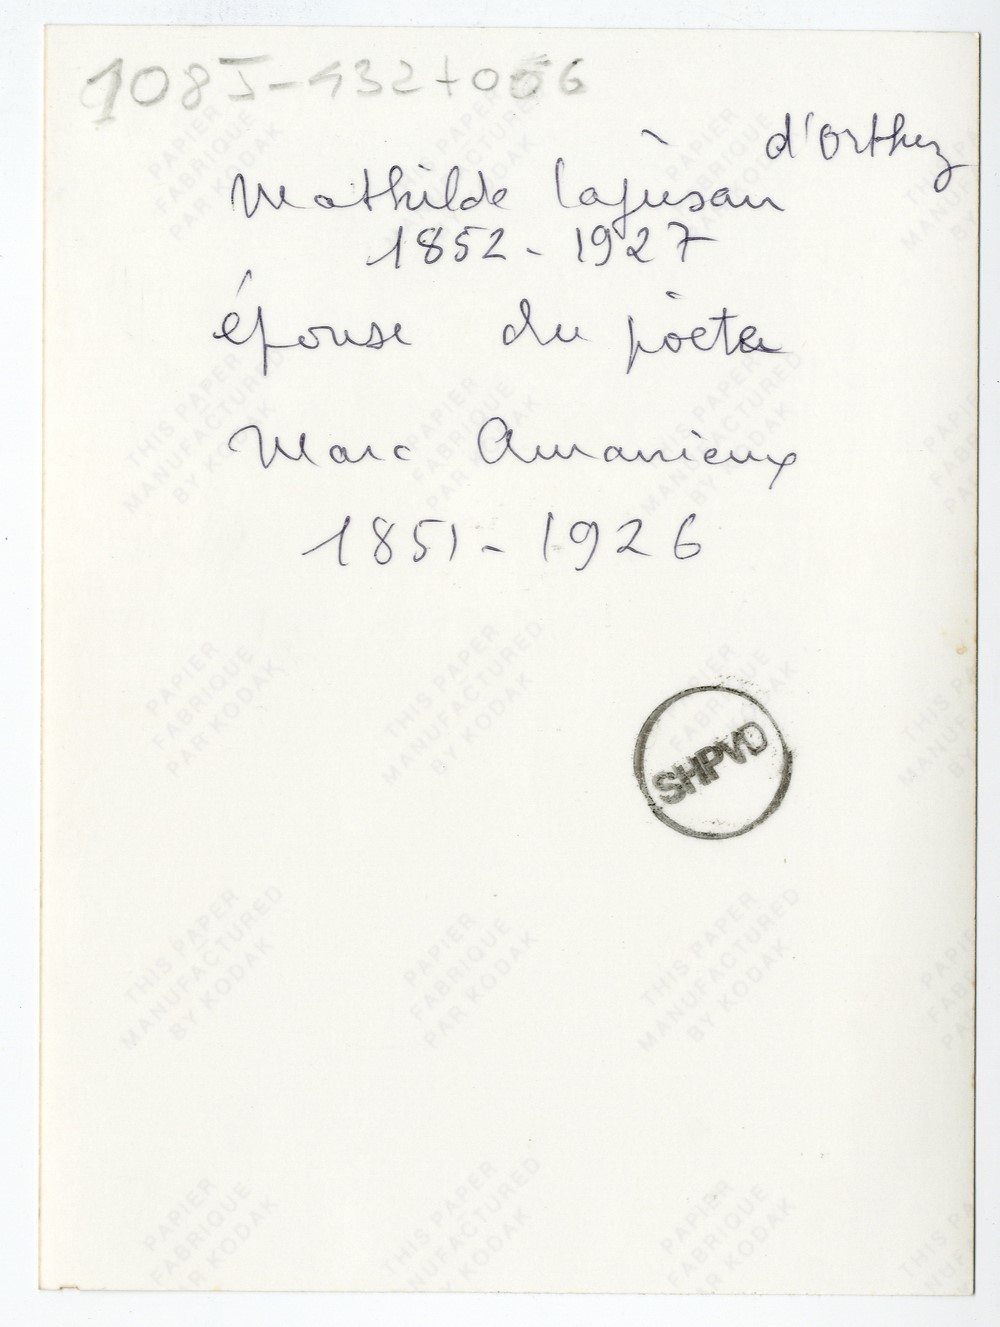 108J-432+006
d'Orthez
Mathilde Lajusan
1852 - 1927
épouse du poète
Marc Amanieux
1851 - 1926
SHPVD
THIS PAPER
MANUFACTURED
BY KODAK
PAPIER
FABRIQUE
PAR KODAK